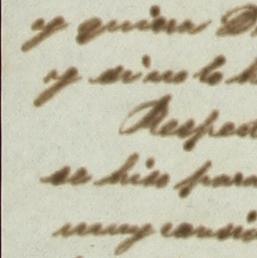 y quiera D
y si no lo h
Respect
se hiso para
muy cansi